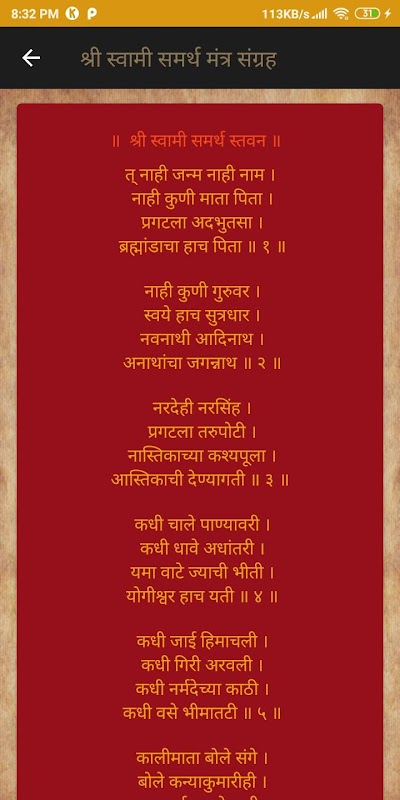 8:32 PM 113KB/s 31
श्री स्वामी समर्थ मंत्र संग्रह
॥ श्री स्वामी समर्थ स्तवन ॥
त् नाही जन्म नाही नाम ।
नाही कुणी माता पिता ।
प्रगटला अदभुतसा ।
ब्रह्मांडाचा हाच पिता ॥ १ ॥
नाही कुणी गुरुवर ।
स्वये हाच सुत्रधार ।
नवनाथी आदिनाथ ।
अनाथांचा जगन्नाथ ॥ २ ॥
नरदेही नरसिंह ।
प्रगटला तरुपोटी ।
नास्तिकाच्या कश्यपूला ।
आस्तिकाची देण्यागती ॥ ३ ॥
कधी चाले पाण्यावरी ।
कधी धावे अधांतरी ।
यमा वाटे ज्याची भीती ।
योगीश्वर हाच यती ॥ ४ ॥
कधी जाई हिमाचली ।
कधी गिरी अरवली ।
कधी नर्मदेच्या काठी ।
कधी वसे भीमातटी ॥ ५ ॥
कालीमाता बोले संगे ।
बोले कन्याकुमारीही ।